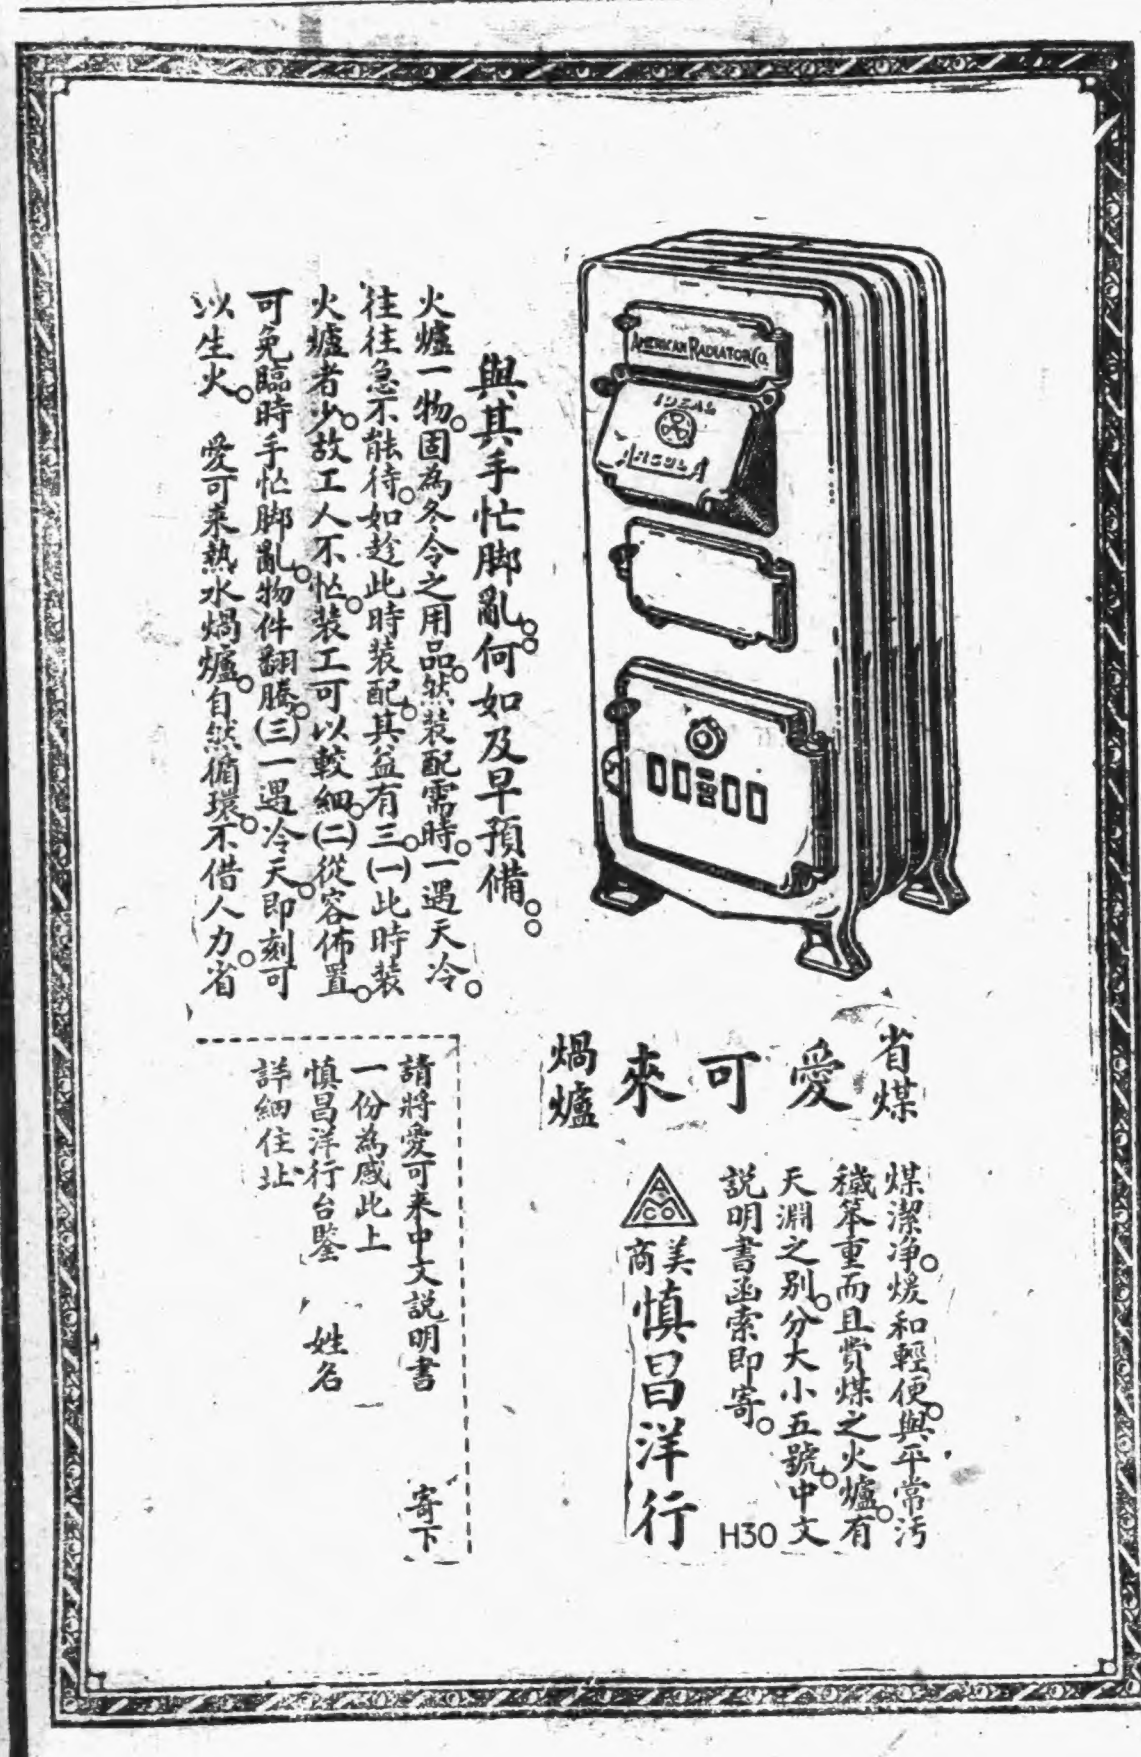 AMERICAN RADIATOR CO.
IDEAL
ARCOLA
與其手忙脚亂。何如及早預備。
火爐一物。固為冬令之用品。然裝配需時。一遇天冷。
往往急不能待。如趁此時裝配。其益有三。(一)此時裝
火爐者少。故工人不忙。裝工可以較細。(二)從容佈置。
可免臨時手忙脚亂。物件翻騰。(三)一遇冷天。即刻可
以生火。 愛可來熱水煱爐。自然循環。不借人力。省
省煤
愛可來
煱爐
煤潔净。煖和輕便。與平常污
穢笨重而且費煤之火爐。有
天淵之别。分大小五號。中文
説明書函索即寄。
H30
A
CO
美商
慎昌洋行
請將愛可來中文説明書 寄下
一份為感此上
慎昌洋行台鑒 姓名
詳細住址